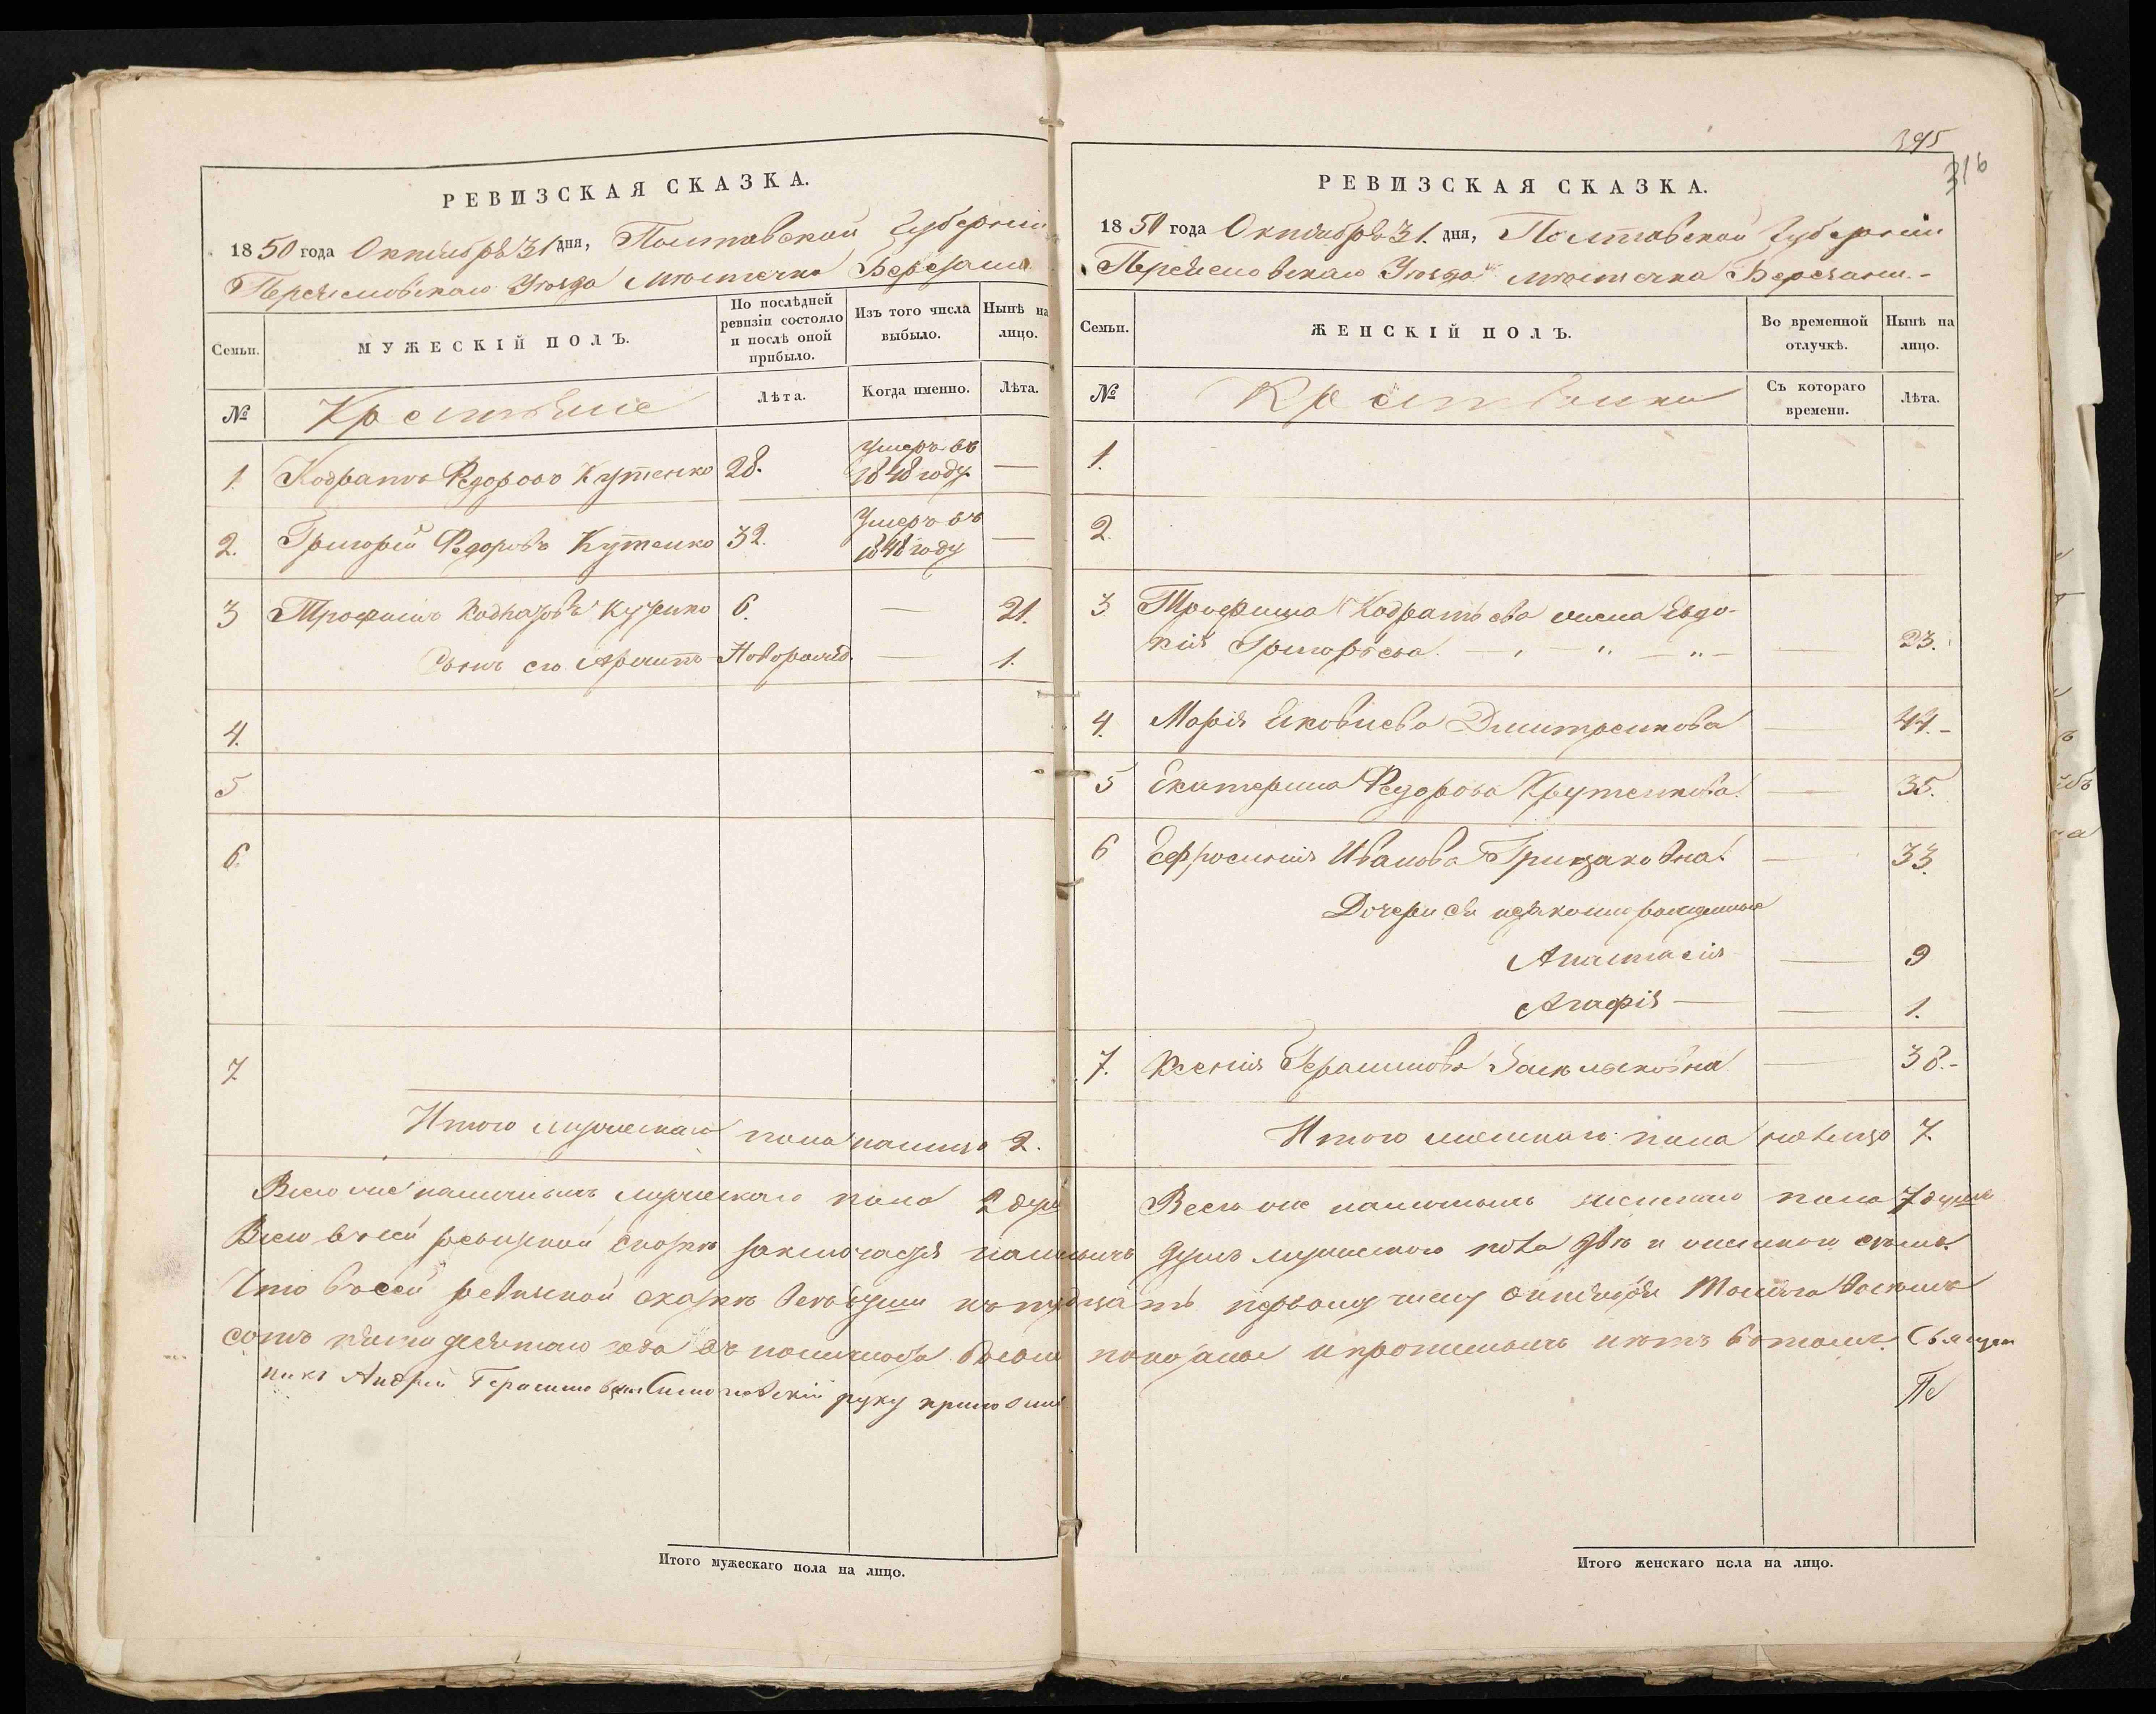 РЕВИЗСКАЯ СКАЗКА.
1850 года Октября 31 дня, Полтавской Губерніи
Переяславскаго Уѣзда мѣстечка Березани
Семьи.
МУЖЕСКІЙ ПОЛЪ.
По послѣдней ревизіи состояло и послѣ оной прибыло.
Изъ того числа выбыло.
Нынѣ на лицо.
№
Крестьяне
Лѣта.
Когда именно.
Лѣта.
1. Кодратъ Федоровъ Кутенко 28. Умеръ въ 1848 году —
2. Григорій Федоровъ Кутенко 32. Умеръ въ 1848 году —
3 Трофимъ Кодратовъ Кутенко 6. — 21.
Сынъ его Новорожд. — 1.
4.
5
6.
7
Итого мужескаго пола налицо 2.
Всего же наличныхъ мужескаго пола 2 души
395
316
РЕВИЗСКАЯ СКАЗКА.
1850 года Октября 31. дня, Полтавской Губерніи
Переяславскаго Уѣзда мѣстечка Березани.-
Семьи.
ЖЕНСКІЙ ПОЛЪ.
Во временной отлучкѣ.
Нынѣ на лицо.
№
Крестьянки
Съ котораго времени.
Лѣта.
1.
2.
3 Трофима Кодратьева жена Евдо-
кія Григорьева — 23.
4. Марія Яковлева Дмитренкова — 44.-
5 Екатерина Федорова Крутенкова. — 35.
6 Ефросинія Иванова — 33.
Дочери ея незаконнорожденные
Анастасія — 9
Агафія — 1.
7. Ксенія Герасимова — 38.-
Итого женскаго пола налицо 7.
Всего же наличныхъ женскаго пола 7 душъ
Всего в сей ревизской сказкѣ заключается наличныхъ душъ мужескаго пола двѣ и женскаго семь.
Что въ сей ревизской сказкѣ всѣ души къ тридцать первому числу Октября Тысяча Восемь
сотъ пятидесятаго года въ наличности показаны и прописныхъ нѣтъ в томъ. Священ
никъ Андрей Герасимовъ руку приложилъ